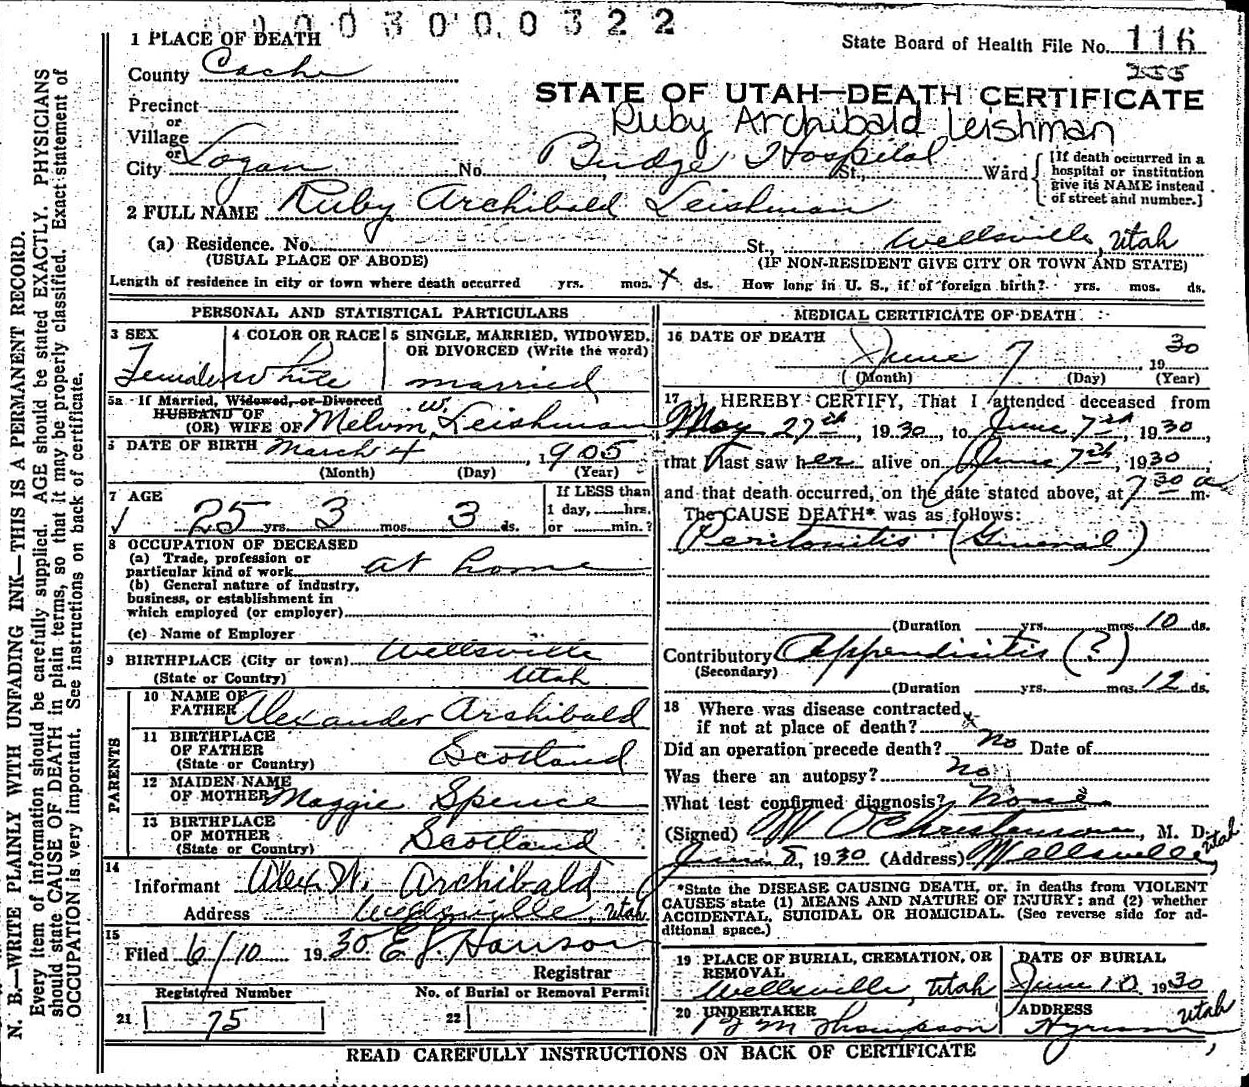 0 0 3 0 0 0 3 2 2
1 PLACE OF DEATH
State Board of Health File No. 116
255
County Cache
STATE OF UTAH—DEATH CERTIFICATE
Precinct
Ruby Archibald Leishman
or
Village
or
City Logan No. Budge Hospital St., Ward
[If death occurred in a
hospital or institution
give its NAME instead
of street and number.]
2 FULL NAME Ruby Archibald Leishman
(a) Residence. No. St., Wellsville, Utah
(USUAL PLACE OF ABODE) (IF NON-RESIDENT GIVE CITY OR TOWN AND STATE)
Length of residence in city or town where death occurred yrs. mos. ds. How long in U. S., if of foreign birth? yrs. mos. ds.
PERSONAL AND STATISTICAL PARTICULARS
3 SEX
Female
4 COLOR OR RACE
White
5 SINGLE, MARRIED, WIDOWED,
OR DIVORCED (Write the word)
married
5a If Married, Widowed, or Divorced
HUSBAND OF
(OR) WIFE OF Melvin W. Leishman
6 DATE OF BIRTH March 4 1905
(Month) (Day) (Year)
7 AGE
25 yrs. 3 mos. 3 ds.
If LESS than
1 day, hrs.
or min.?
8 OCCUPATION OF DECEASED
(a) Trade, profession or
particular kind of work at home
(b) General nature of industry,
business, or establishment in
which employed (or employer)
(c) Name of Employer
9 BIRTHPLACE (City or town) Wellsville
(State or Country) Utah
PARENTS
10 NAME OF
FATHER Alexander Archibald
11 BIRTHPLACE
OF FATHER
(State or Country) Scotland
12 MAIDEN NAME
OF MOTHER Maggie Spence
13 BIRTHPLACE
OF MOTHER
(State or Country) Scotland
14
Informant Alex W. Archibald
Address Wellsville, Utah
15
Filed 6/10 1930 E J Hanson
Registrar
Registered Number
21 75
No. of Burial or Removal Permit
22
MEDICAL CERTIFICATE OF DEATH
16 DATE OF DEATH
June 7 1930
(Month) (Day) (Year)
17 I HEREBY CERTIFY, That I attended deceased from
May 27th, 1930, to June 7th, 1930,
that I last saw her alive on June 7th, 1930,
and that death occurred, on the date stated above, at 7 30 a m.
The CAUSE DEATH* was as follows:
Peritonitis (General)
(Duration yrs. mos. 10 ds.
Contributory Appendicitis (?)
(Secondary)
(Duration yrs. mos. 12 ds.
18 Where was disease contracted
if not at place of death? x
Did an operation precede death? no Date of
Was there an autopsy? no
What test confirmed diagnosis? None
(Signed) W O Christenson, M. D.
June 8, 1930 (Address) Wellsville, Utah
*State the DISEASE CAUSING DEATH, or, in deaths from VIOLENT
CAUSES state (1) MEANS AND NATURE OF INJURY; and (2) whether
ACCIDENTAL, SUICIDAL OR HOMICIDAL. (See reverse side for ad-
ditional space.)
19 PLACE OF BURIAL, CREMATION, OR
REMOVAL
Wellsville, Utah
DATE OF BURIAL
June 10 1930
20 UNDERTAKER
M Thompson
ADDRESS
Hyrum, Utah
READ CAREFULLY INSTRUCTIONS ON BACK OF CERTIFICATE
N. B.—WRITE PLAINLY WITH UNFADING INK—THIS IS A PERMANENT RECORD.
Every item of information should be carefully supplied. AGE should be stated EXACTLY. PHYSICIANS
should state CAUSE OF DEATH in plain terms, so that it may be properly classified. Exact statement of
OCCUPATION is very important. See instructions on back of certificate.